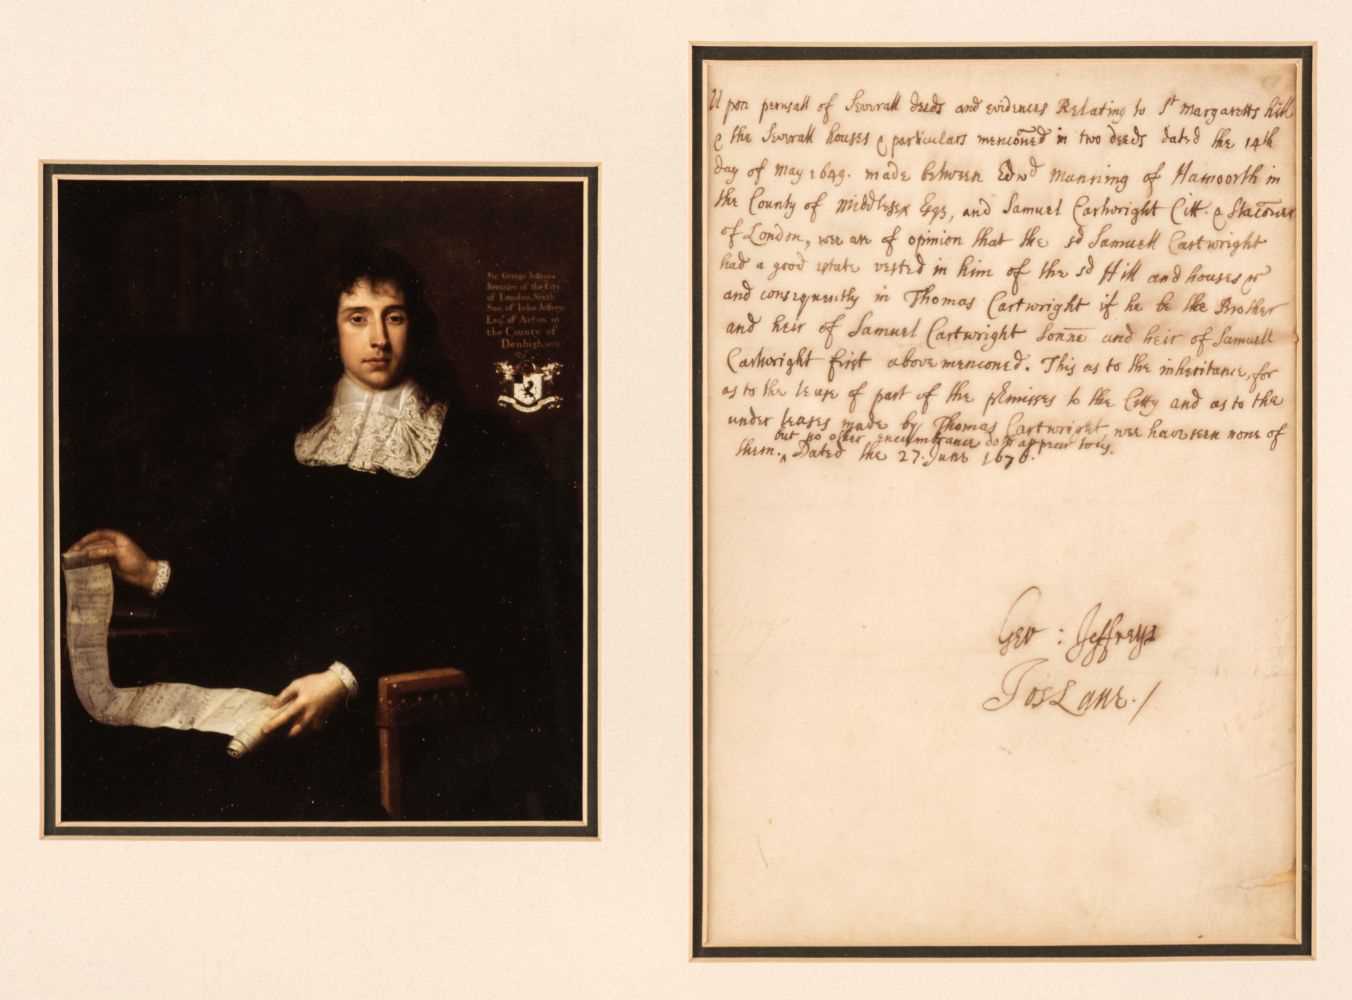 Sir George Jeffreys
Recorder of the City
of London, Sixth
Son of John Jeffreys
Esqr. of Acton in
the County of
Denbigh
Upon perusall of Severall deeds and evidences Relating to St. Margaretts hill
& the Severall houses & particulars mencõned in two deeds dated the 14th
day of May 1649. made between Edwd Manning of Hamoorth in
the County of Middlesex Esqr, and Samuel Cartwright Citt. & Stacõner
of London, wee are of opinion that the sd Samuell Cartwright
had a good estate vested in him of the sd Hill and houses
and consequently in Thomas Cartwright if he be the Brother
and heir of Samuel Cartwright Sonne and heir of Samuell
Cartwright first above menconed. This as to the inheritance, for
as to the lease of part of the premisses to the Citty and as to the
under leases made by Thomas Cartwright wee have seen none of
but no other encumbrance do appear to us.
them. ‸ Dated the 27. June 1676.
Geo : Jeffreys
Jos Lane./